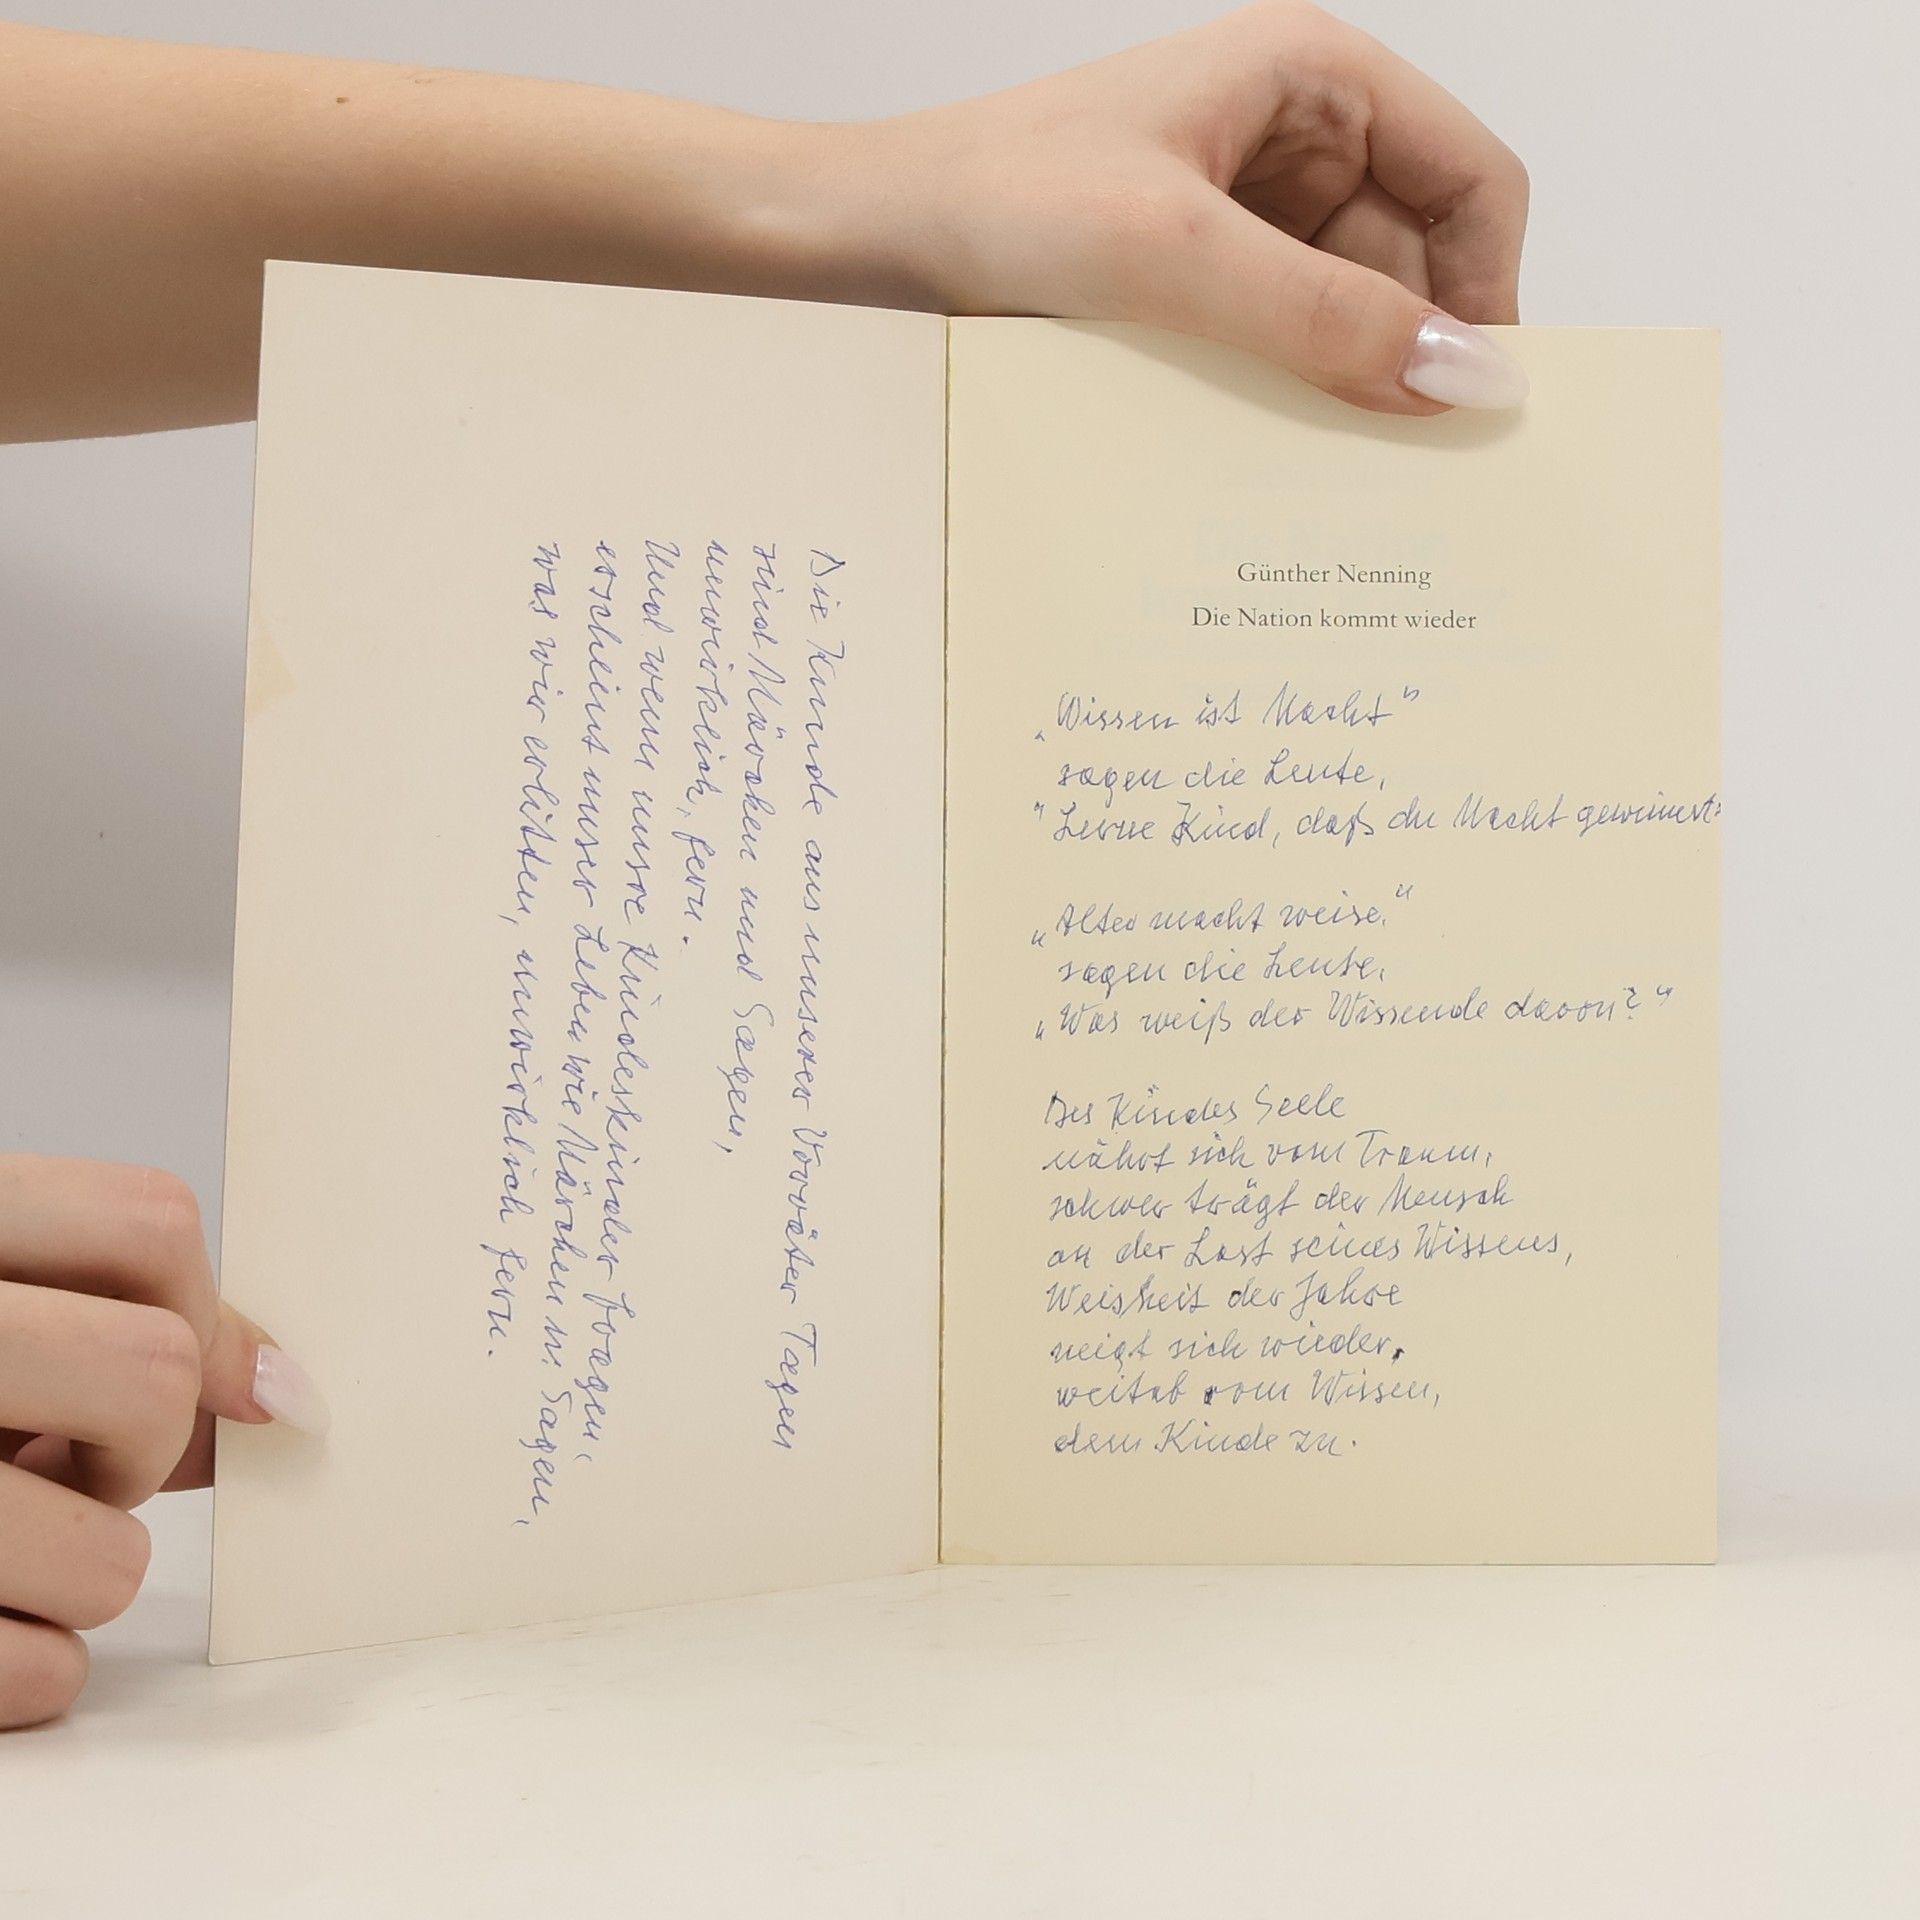 Die Kunde aus unserer Vorväter Tagen
sind Märchen und Sagen,
unwirklich, fern.
Und wenn unsre Kindeskinder fragen,
erscheint unser Leben wie Märchen u. Sagen,
was wir erlitten, unwirklich fern.
Günther Nenning
Die Nation kommt wieder
„Wissen ist Macht"
sagen die Leute,
"Lerne Kind, daß du Macht gewinnst."
„Alter macht weise."
sagen die Leute.
„Was weiß der Wissende davon?"
Des Kindes Seele
nährt sich vom Traum,
schwer trägt der Mensch
an der Last seines Wissens,
Weisheit der Jahre
neigt sich wieder,
weitab vom Wissen,
dem Kinde zu.